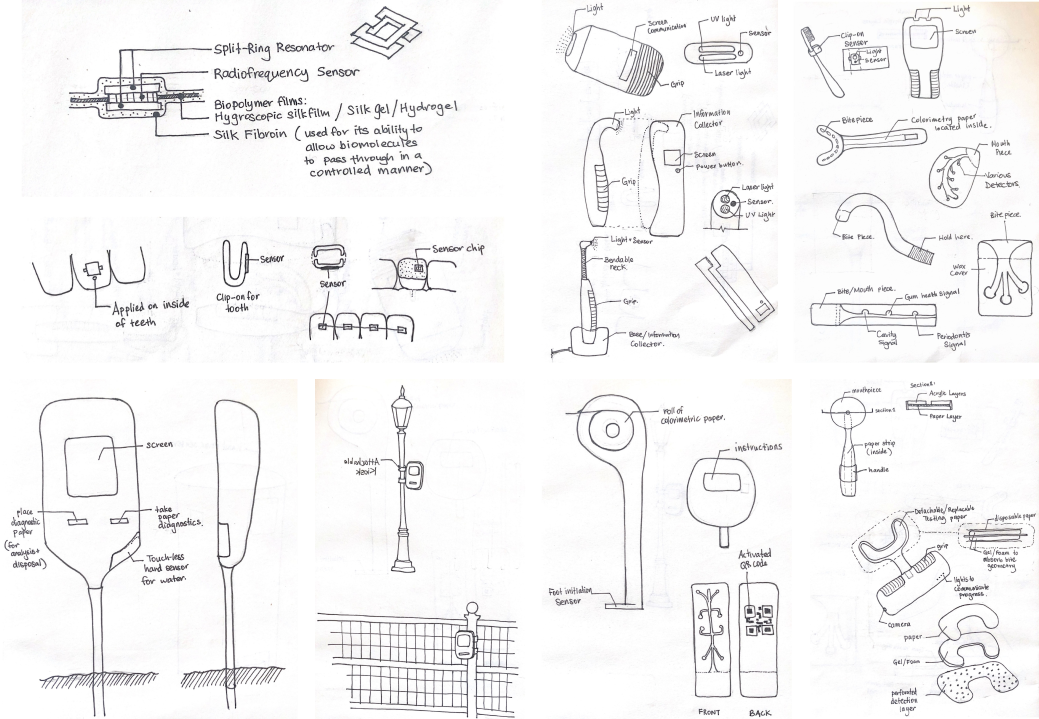 Split-Ring Resonator
Radiofrequency Sensor
Biopolymer films:
Hygroscopic silk film / Silk gel/Hydrogel
Silk Fibroin ( used for its ability to
allow biomolecules
to pass through in a
controlled manner)
Applied on inside
of teeth
Sensor
Clip-on for
tooth
Sensor
Sensor chip
Light
Screen
Communication
Grip
UV light
Sensor
Laser light
Light
Grip
Information
Collector
Screen
Power button.
Laser light
Sensor.
UV Light
Light + Sensor
Bendable
neck
Grip
Base/Information
Collector.
Clip-on
Sensor
Light
Sensor
Light
Screen
Bite piece
Colorimetry paper
located inside.
Mouth
Piece
Various
Detectors.
Bite Piece.
Hold here.
Bite piece.
wax
Cover
Bite/Mouth piece.
Gum health Signal
Cavity
Signal
Periodontis
Signal
screen
place
diagnostic
paper
(for
analysis+
disposal)
take
paper
diagnostics.
Touch-less
hand sensor
for water.
Attachable
Kiosk
roll of
colorimetric paper.
Foot initiation
Sensor
instructions
Activated
QR code
FRONT
BACK
mouthpiece
section B
Section B:
Acrylic Layers
Paper Layer
paper strip
(inside)
handle
Detachable/Replacable
Testing paper
disposable paper
Gel/foam to
absorb bite
geometry
grip
lights to
communicate
progress.
camera
paper
Gel/Foam
perforated
detection
layer